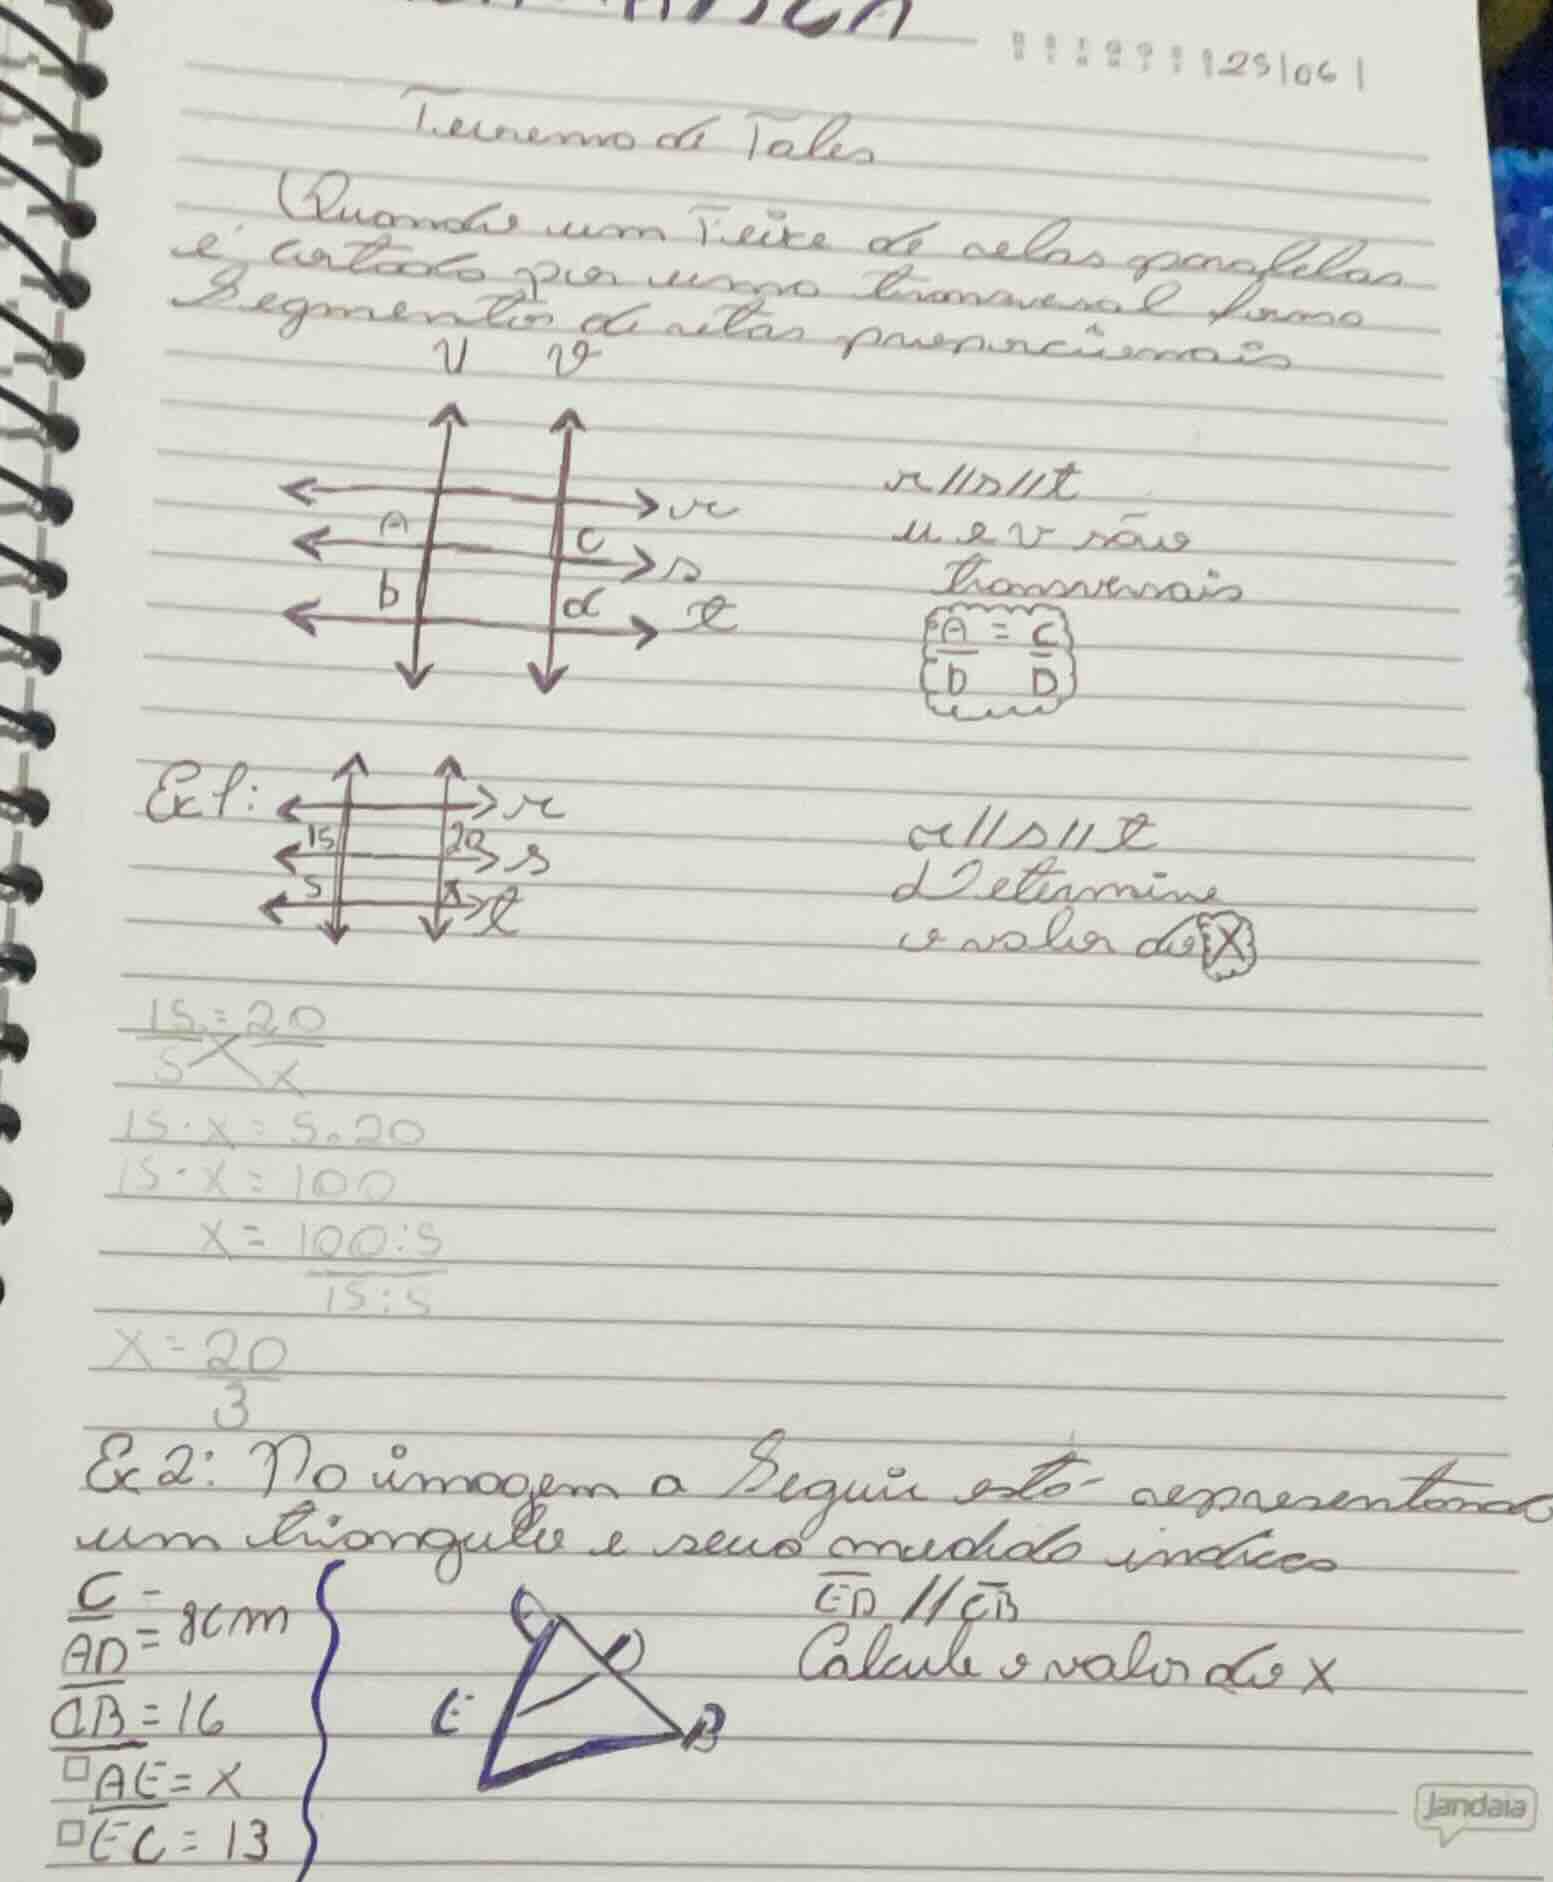 25/06/
Teorema de Tales
Quando um Feixe de retas paralelas
é cortado por uma transversal forma
Segmentos de retas proporcionais
U v
r
A C s
b d t
r//s//t
u e v são
transversais
A = C
b D
Ex1:
r
15 20 s
5 x t
r//s//t
Determine
o valor do X
15 = 20
5 x
15·x = 5.20
15·x = 100
x = 100:5
15:5
x = 20
3
Ex2: Na imagem a Seguir está representando
um triangulo e seus medida indica
C =
AD = 8cm
DB = 16
AE = X
EC = 13
D
E B
ED // CB
Calcule o valor do x
Jandaia